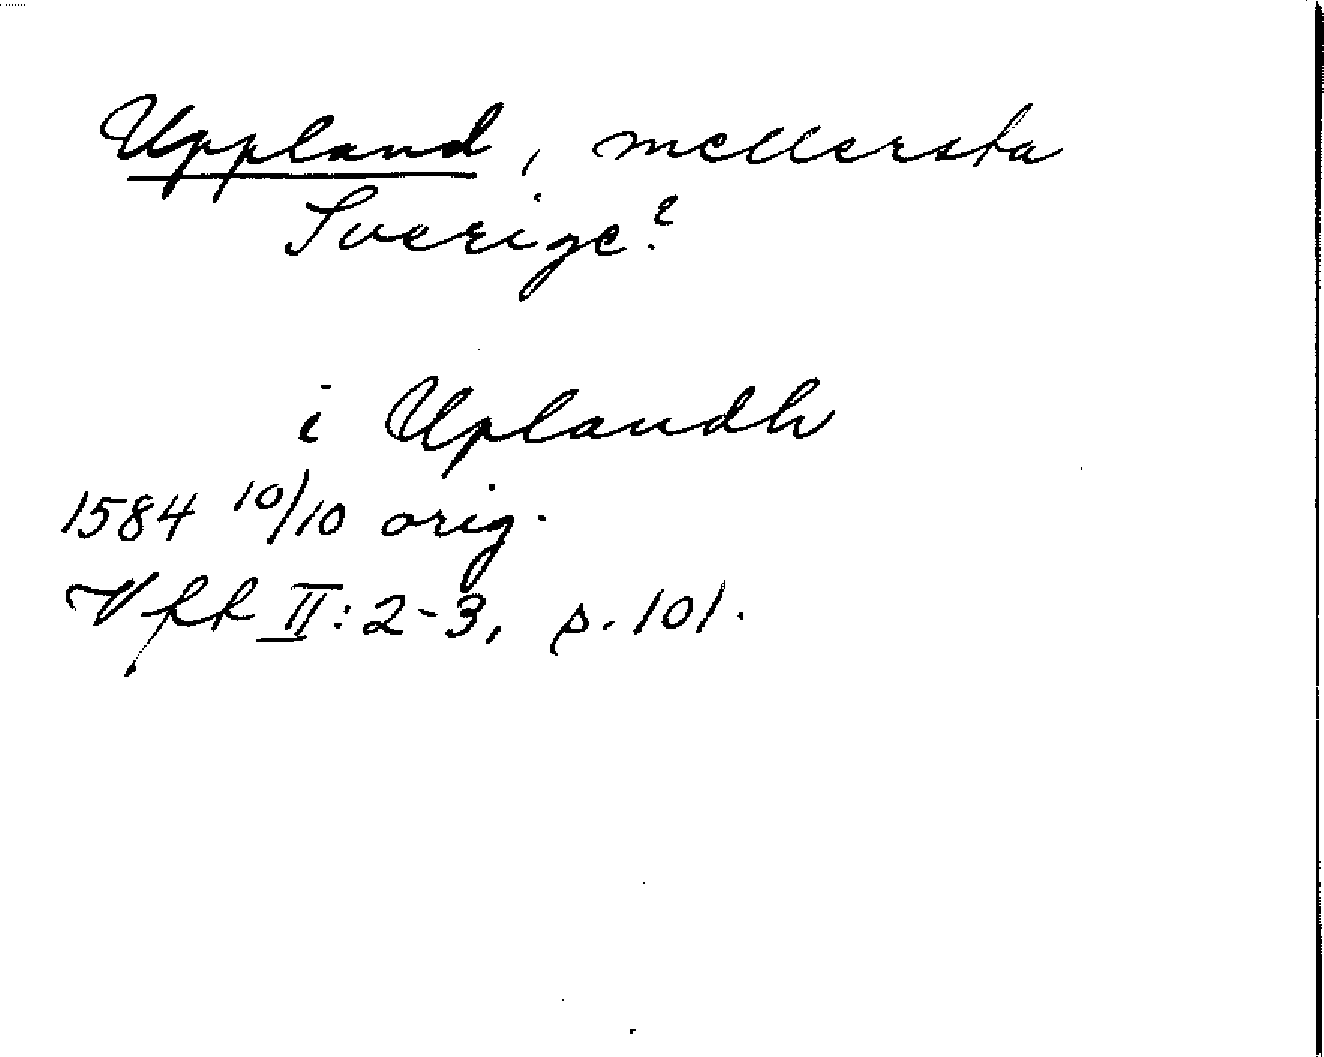 Uppland, mellersta
Sverige?
i Uplandh
1584 10/10 orig.
Vfk II: 2-3, p. 101.